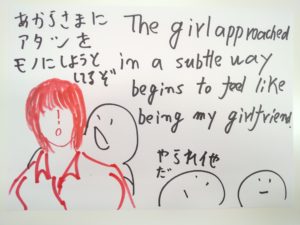 あからさまに
アタシを
モノにしようと
してるぞ
The girl approached
in a subtle way
begins to feel like
being my girlfriend.
やられ
だ